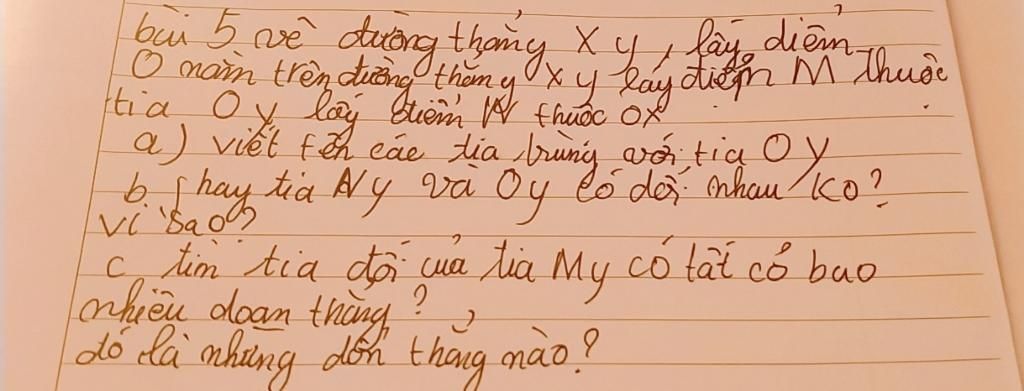 bùi 5 vẽ đường thẳng X y, lấy điểm
O nằm trên đường thẳng x y lấy điểm M thuộc
tia Oy lấy điểm N thuộc OX
a) viết tên các tia trùng với tia Oy
b. hay tia Ny và Oy có đối nhau ko?
Vì sao?
c tìm tia đối của tia My có tất cỏ bao
nhiêu đoạn thẳng?
đó là những đoạn thẳng nào?